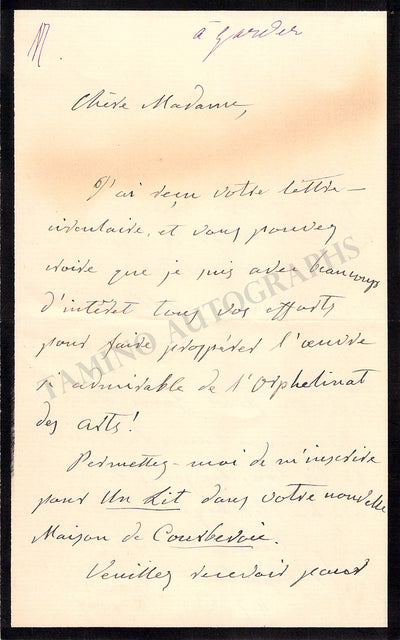 à garder
Chère Madame,
J'ai reçu votre lettre-
circulaire, et vous pouvez
croire que je suis avec beaucoup
d'intérêt tous vos efforts
pour faire prospérer l'œuvre
si admirable de l'Orphelinat
des Arts!
Permettez-moi de m'inscrire
pour Un Lit dans votre nouvelle
Maison de Courbevoie.
Veuillez recevoir pour
TAMINO AUTOGRAPHS